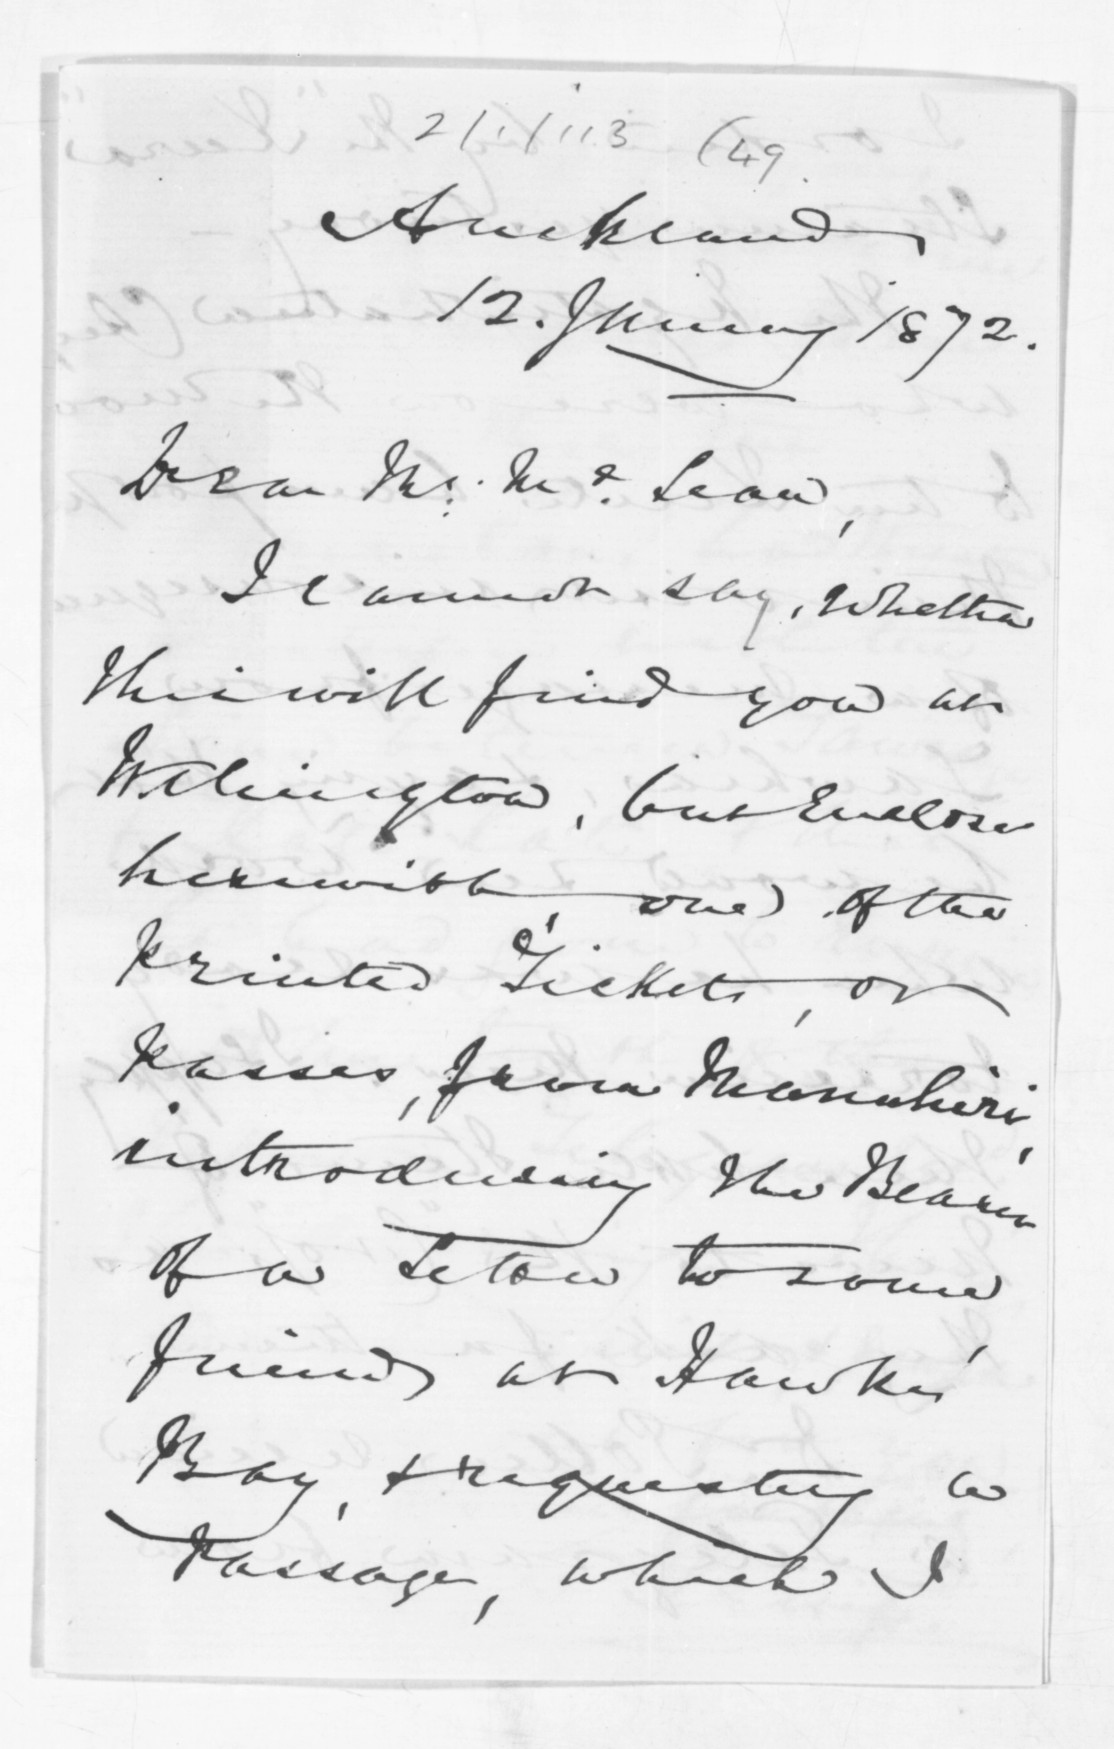 2/1/113 (49.
Auckland,
12. January 1872.
Dear Mr. McLean,
I cannot say, whether
this will find you at
Wellington, but enclose
herewith one of the
printed Tickets, or
passes, from Manuhiri,
introducing the Bearer
of a Letter to some
friends at Hawkes'
Bay, & requesting a
passage, which I